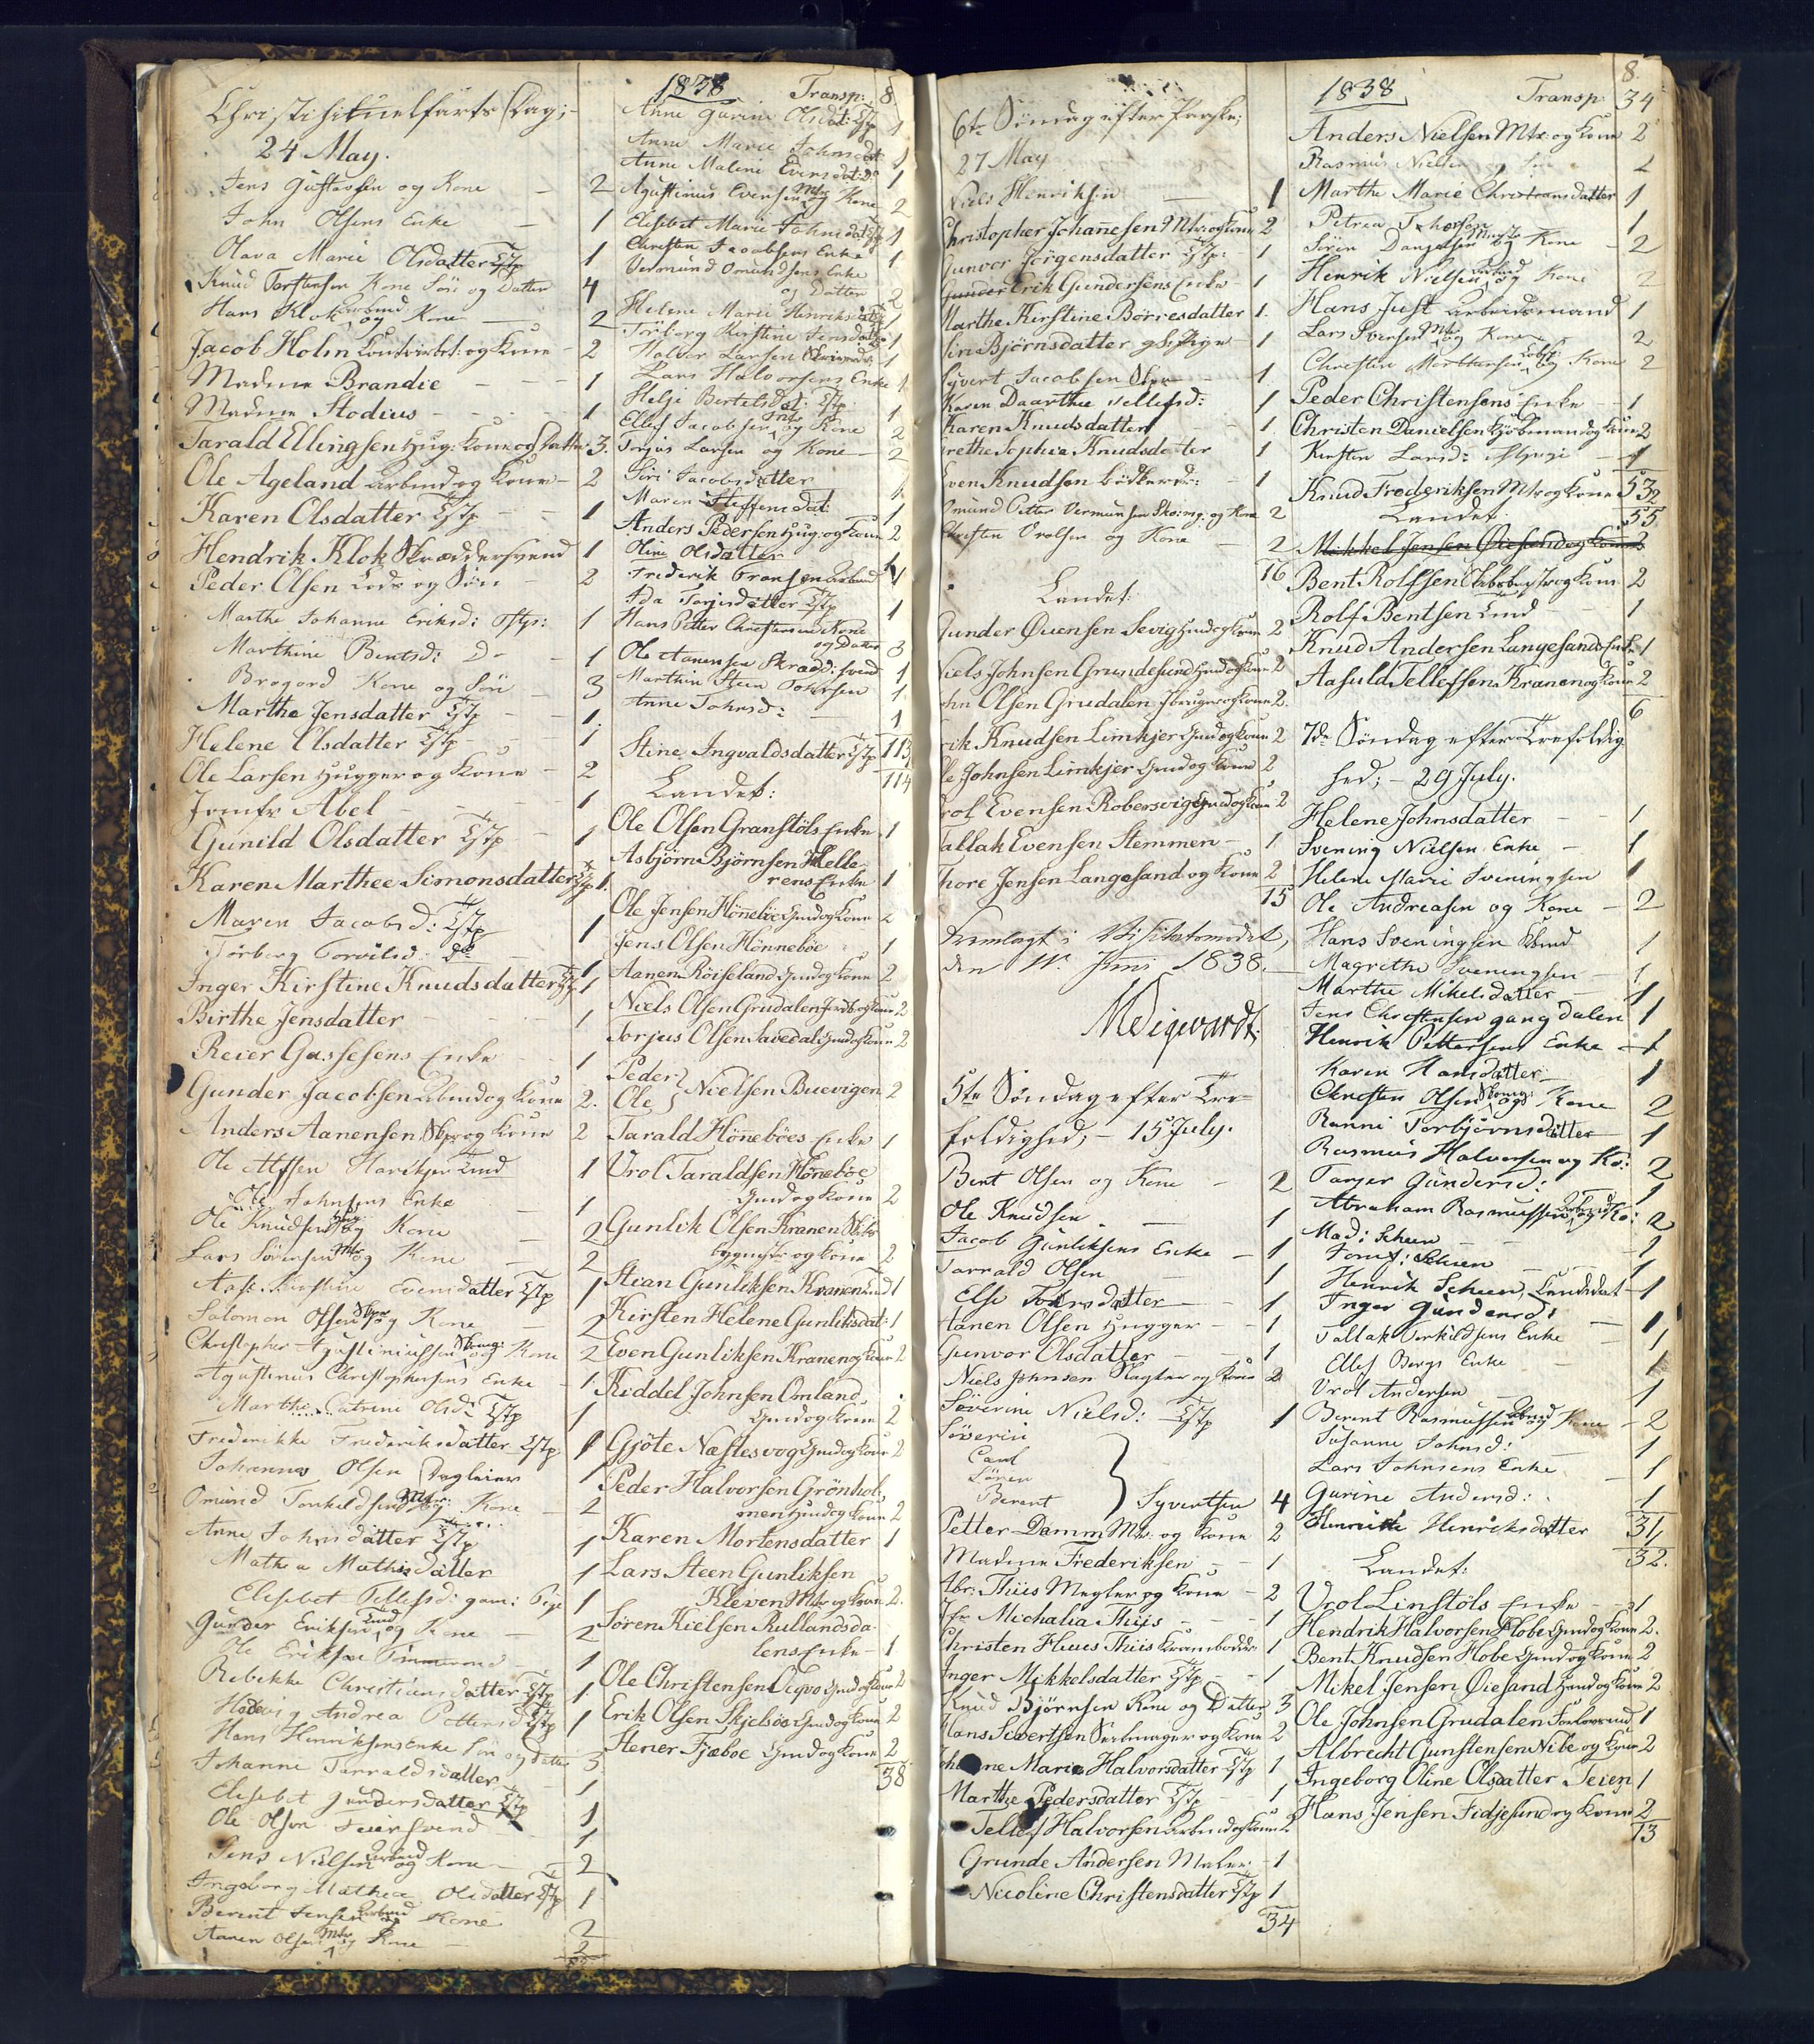 Christi himmelfarts Dag;
24 May.
Jens Gustavsen og Kone - 2
John Olsens Enke - 1
Olava Marie Olsdatter Tjp 1
Knud Torstensen Kone Sön og Datter 4
Hans Klok Arbmd og Kone 2
Jacob Holm Contoirbet: og Kone - 2
Madme Brandie - 1
Madme Stodius - 1
Tarald Ellingsen Hug: Kone og Datter 3.
Ole Ageland Arbmd og Kone - 2
Karen Olsdatter Tjp - 1
Hendrik Klok Skræddersvend 1
Peder Olsen Lods og Sön - 2
Marthe Johanne Eriksd: 1
Marthine Bentsd: D - 1
Brogord Kone og Sön - 3
Marthe Jensdatter Tjp - 1.
Helene Olsdatter Tjp - 1
Ole Larsen Hugger og Kone - 2
Jomfr Abel - 1
Gunild Olsdatter Tjp - 1
Karen Marthee Simonsdatter Tjp 1.
Maren Jacobsd: Tjp 1
Torborg Torvilsd: do 1
Inger Kirstine Knudsdatter Tjp 1
Birthe Jensdatter - 1
Reier Gassesens Enke - 1
Gunder Jacobsen Arbmd og Kone 2.
Anders Aanensen Skpr og Kone 2
Ole 1
Ole Johnsens Enke 1
Ole Knudsen og Kone 2
Lars Sörensen Mtr og Kone 2
Evensdatter Tjp 1
Salomon Olsen Skpr og Kone 2
Christopher Agustiniussen og Kone 2
Agustinus Christophersens Enke - 1
Marthe Catrine Olsd: Tjp 1
Frederikke Frederiksdatter Tjp 1
Johannes Olsen Dagleier 1
Omund Torkildsen Mtr: og Kone 2
Anne Johnsdatter Tjp 1
Mathea Mathisdatter 1
Elisebet Tellefsd: gam: Pige 1
Gunder Eriksen og Kone - 2
Ole Eriksen Timmermd 1
Rebekke Christiansdatter Tjp 1
Hedevig Andrea Pettersd Tjp 1
Hans Henriksens Enke Sön og Datter 3
Johanne Tarraldsdatter 1
Elisebet Gundersdatter Tjp 1
Ole Olsen Feiersvend 1
Jens Nielsen Arbmd og Kone - 2
Ingeborg Mathea Olsdatter Tjp 1
Berent Jensen Arbmd og Kone 2
Aanen Olsen Mtr og Kone - 2
1838 Transp: 8.
Anne Gurine Olsdat: Tjp 1
Anne Marie Johnsdat: 1
Anne Maline Evensdat: Do 1
Agustinus Evensen Mtr og Kone 2
Elisebet Marie Johnsdat Tjp 1
Christen Jacobsens Enke 1
Vermund Omundsens Enke
og Datter 2
Helene Marie Henriksdat 1
Torborg Kirstine Jensdat 1
Halvor Larsen 1
Lars Halvorsens Enke 1
Helje Bertelsdat: Tjp 1
Ellef Jacobsen og Kone 2
Torjus Larsen og Kone - 2
Siri Jacobsdatter 1
Maren Steffensdat: 1
Anders Pedersen Hug: og Kone 2
Oline Olsdatter 1
Frederik Fransen Arbmd 1
Ada Torjusdatter Tjp 1
Hans Petter Christensen Kone
og Datter 3
Ole Aanensen Skrædd: svend 1
Marthin Steen Pedersen 1
Anne Johnsd: 1
Stine Ingvaldsdatter Tjp 113/1
114
Landet:
Ole Olsen Granstöls Enke 1
Asbjörn Björnsen Helle-
rens Enke 1
Ole Jensen Hönneböe Gmd og Kone 2
Jens Olsen Hönneböe 1
Aanen Röiseland Gmd og Kone 2
Niels Olsen Grudalen Jordb: og Kone 2
Torjus Olsen Savedal Gmd og Kone 2
Peder }
Ole } Nielsen Buevigen 2
Tarald Hönneböes Enke 1
Vrol Taraldsen Hönneböe
Gmd og Kone 2
Gunlik Olsen Kranen Skibs
bygmstr og Kone 2
Stian Gunliksen Kranen Lmd 1
Kirsten Helene Gunliksdat: 1
Even Gunliksen Kranen og Kone 2
Kiddel Johnsen Omland
Gmd og Kone 2
Gjöte Næstesvog Gmd og Kone 2
Peder Halvorsen Grönhol-
men Hmd og Kone 2
Karen Mortensdatter 1
Lars Steen Gunliksen
Kleven Mtr og Kone 2.
Sören Kielsen Rullandsda-
lens Enke - 1
Ole Christensen Sigvo Gmd og Kone 2
Erik Olsen Skjelsöe Gmd og Kone 2
Stener Fjæboe Gmd og Kone 2
38
6te Söndag efter Paaske;
27 May
Niels Henriksen - 1
Christopher Johannesen Mtr: og Kone 2
Gunvor Jörgensdatter Tjp: - 1
Gunder Erik Gundersens Enke - 1
Marthe Kirstine Börresdatter 1.
Björnsdatter gl: Pige - 1
Syvert Jacobsen Skpr - 1.
Karen Daarthea Tellefsd: 1
Karen Knudsdatter 1.
Grethe Sophie Knudsdatter 1
Sven Knudsen Bödkerdr: - 1
Omund Petter Vermunsen Skoing: og Kone 2
Christen Vrolsen og Kone - 2
16
Landet:
Gunder Qvensen Sevig Hmd og Kone 2
Niels Johnsen Grundesund Hmd og Kone 2
John Olsen Grudalen Jbruger og Kone 2.
Erik Knudsen Limkjer Gmd og Kone 2
Ole Johnsen Limkjer Gmd og Kone 2
Vrol Evensen Robersvig Gmd og Kone 2
Tallak Evensen Stemmen - 1
Thore Jensen Langesand og Kone 2
15
Fremlagt i Visitatsmödet,
den 11. Juni 1838.
5te Söndag efter Tre-
foldighed; - 15 July.
Bent Olsen og Kone - 2
Ole Knudsen - 1
Jacob Gunliksens Enke - 1
Tarrald Olsen 1
Else Tohrsdatter - 1
Aanen Olsen Hugger - 1
Gunvor Olsdatter - 1
Niels Johnsen Slagter og Kone 2
Severine Nielsd: Tjp 1
Söverin
Carl
Sören
Berent } Syvertsen 4
Petter Damm Mtr: og Kone 2
Madme Frederiksen - 1
Abr: Thiis Megler og Kone - 2
Jfr Michalia Thiis - 1
Christen Huus Thiis Krambodde: 1
Inger Mikkelsdatter Tjp - 1
Knud Björnsen Kone og Datter 3
Hans Sivertsen Seilmager og Kone 2
Johanne Marie Halvorsdatter Tjp 1
Marthe Pedersdatter Tjp - 1
Tellef Halvorsen Arbmd og Kone 2
Grunde Andersen Maler - 1
Nicoline Christensdatter Tjp 1
34
8.
1838 Transp: 34
Anders Nielsen Mtr: og Kone 2
Rasmus Nielsen og Sön 2
Marthe Marie Christiansdatter 1
Petrea 1
Sören Danjelsen og Kone - 2
Henrik Nielsen Arbmd og Kone 2
Hans Just Arbeidsmand 1
Lars Svensen Mtr og Kone - 2
Christen Mortensen og Kone 2
Peder Christensens Enke - 1
Christen Danielsen Kjöbmand og Kone 2
Kirsten Larsd: - 1
Knud Frederiksen Mtr og Kone 53/2
55
Landet:
Mikkel Jensen Öiesand og Kone 2
Bent Rolfsen Skibsbygmstr og Kone 2
Rolf Bentsen Lmd - 1
Knud Andersen Langesands Enke 1
Aasuld Tellefsen Kranen og Kone 2
6
7de Söndag efter Trefoldig
hed; - 29 July.
Helene Johnsdatter - 1
Svening Nielsens Enke - 1
Helene Marie Sveningsen 1
Ole Andreasen og Kone - 2
Hans Sveningsen 1
Magrethe Sveningsen - 1
Marthe Mikelsdatter 1
Jens Christensen Gangdalen 1
Henrik Pettersens Enke - 1
Karen Hansdatter 1
Christen Olsen og Kone 2
Ranni Torbjörnsdatter 1
Rasmus Halvorsen og Ko: 2
Torger Gundersd: 1
Abraham Rasmussen Arbmd og Ko: 2
Mad: Scheen - 1
Jomf: Scheen - 1
Henrik Scheen, Candidat - 1
Inger Gundersd: 1
Tallak Terkildsens Enke - 1
Ellef Bergs Enke - 1
Vrol Andersen - 1
Berent Rasmussen Arbmd og Kone - 2
Susanne Johnsd: 1
Lars Johnsens Enke - 1
Gurine Andersd: 1
Henriette Henriksdatter 31/1
32.
Landet:
Vrol Linstöls Enke - 1
Hendrik Halvorsen Hobe Gmd og Kone 2.
Bent Knudsen Hobe Gmd og Kone 2
Mikel Jensen Öiesand Hmd og Kone 2
Ole Johnsen Grudalen Forlovemd 1
Albrecht Gunstensen Nibe og Kone 2
Ingeborg Oline Olsdatter Teien 1
Hans Jensen Fidjesund og Kone 2
13